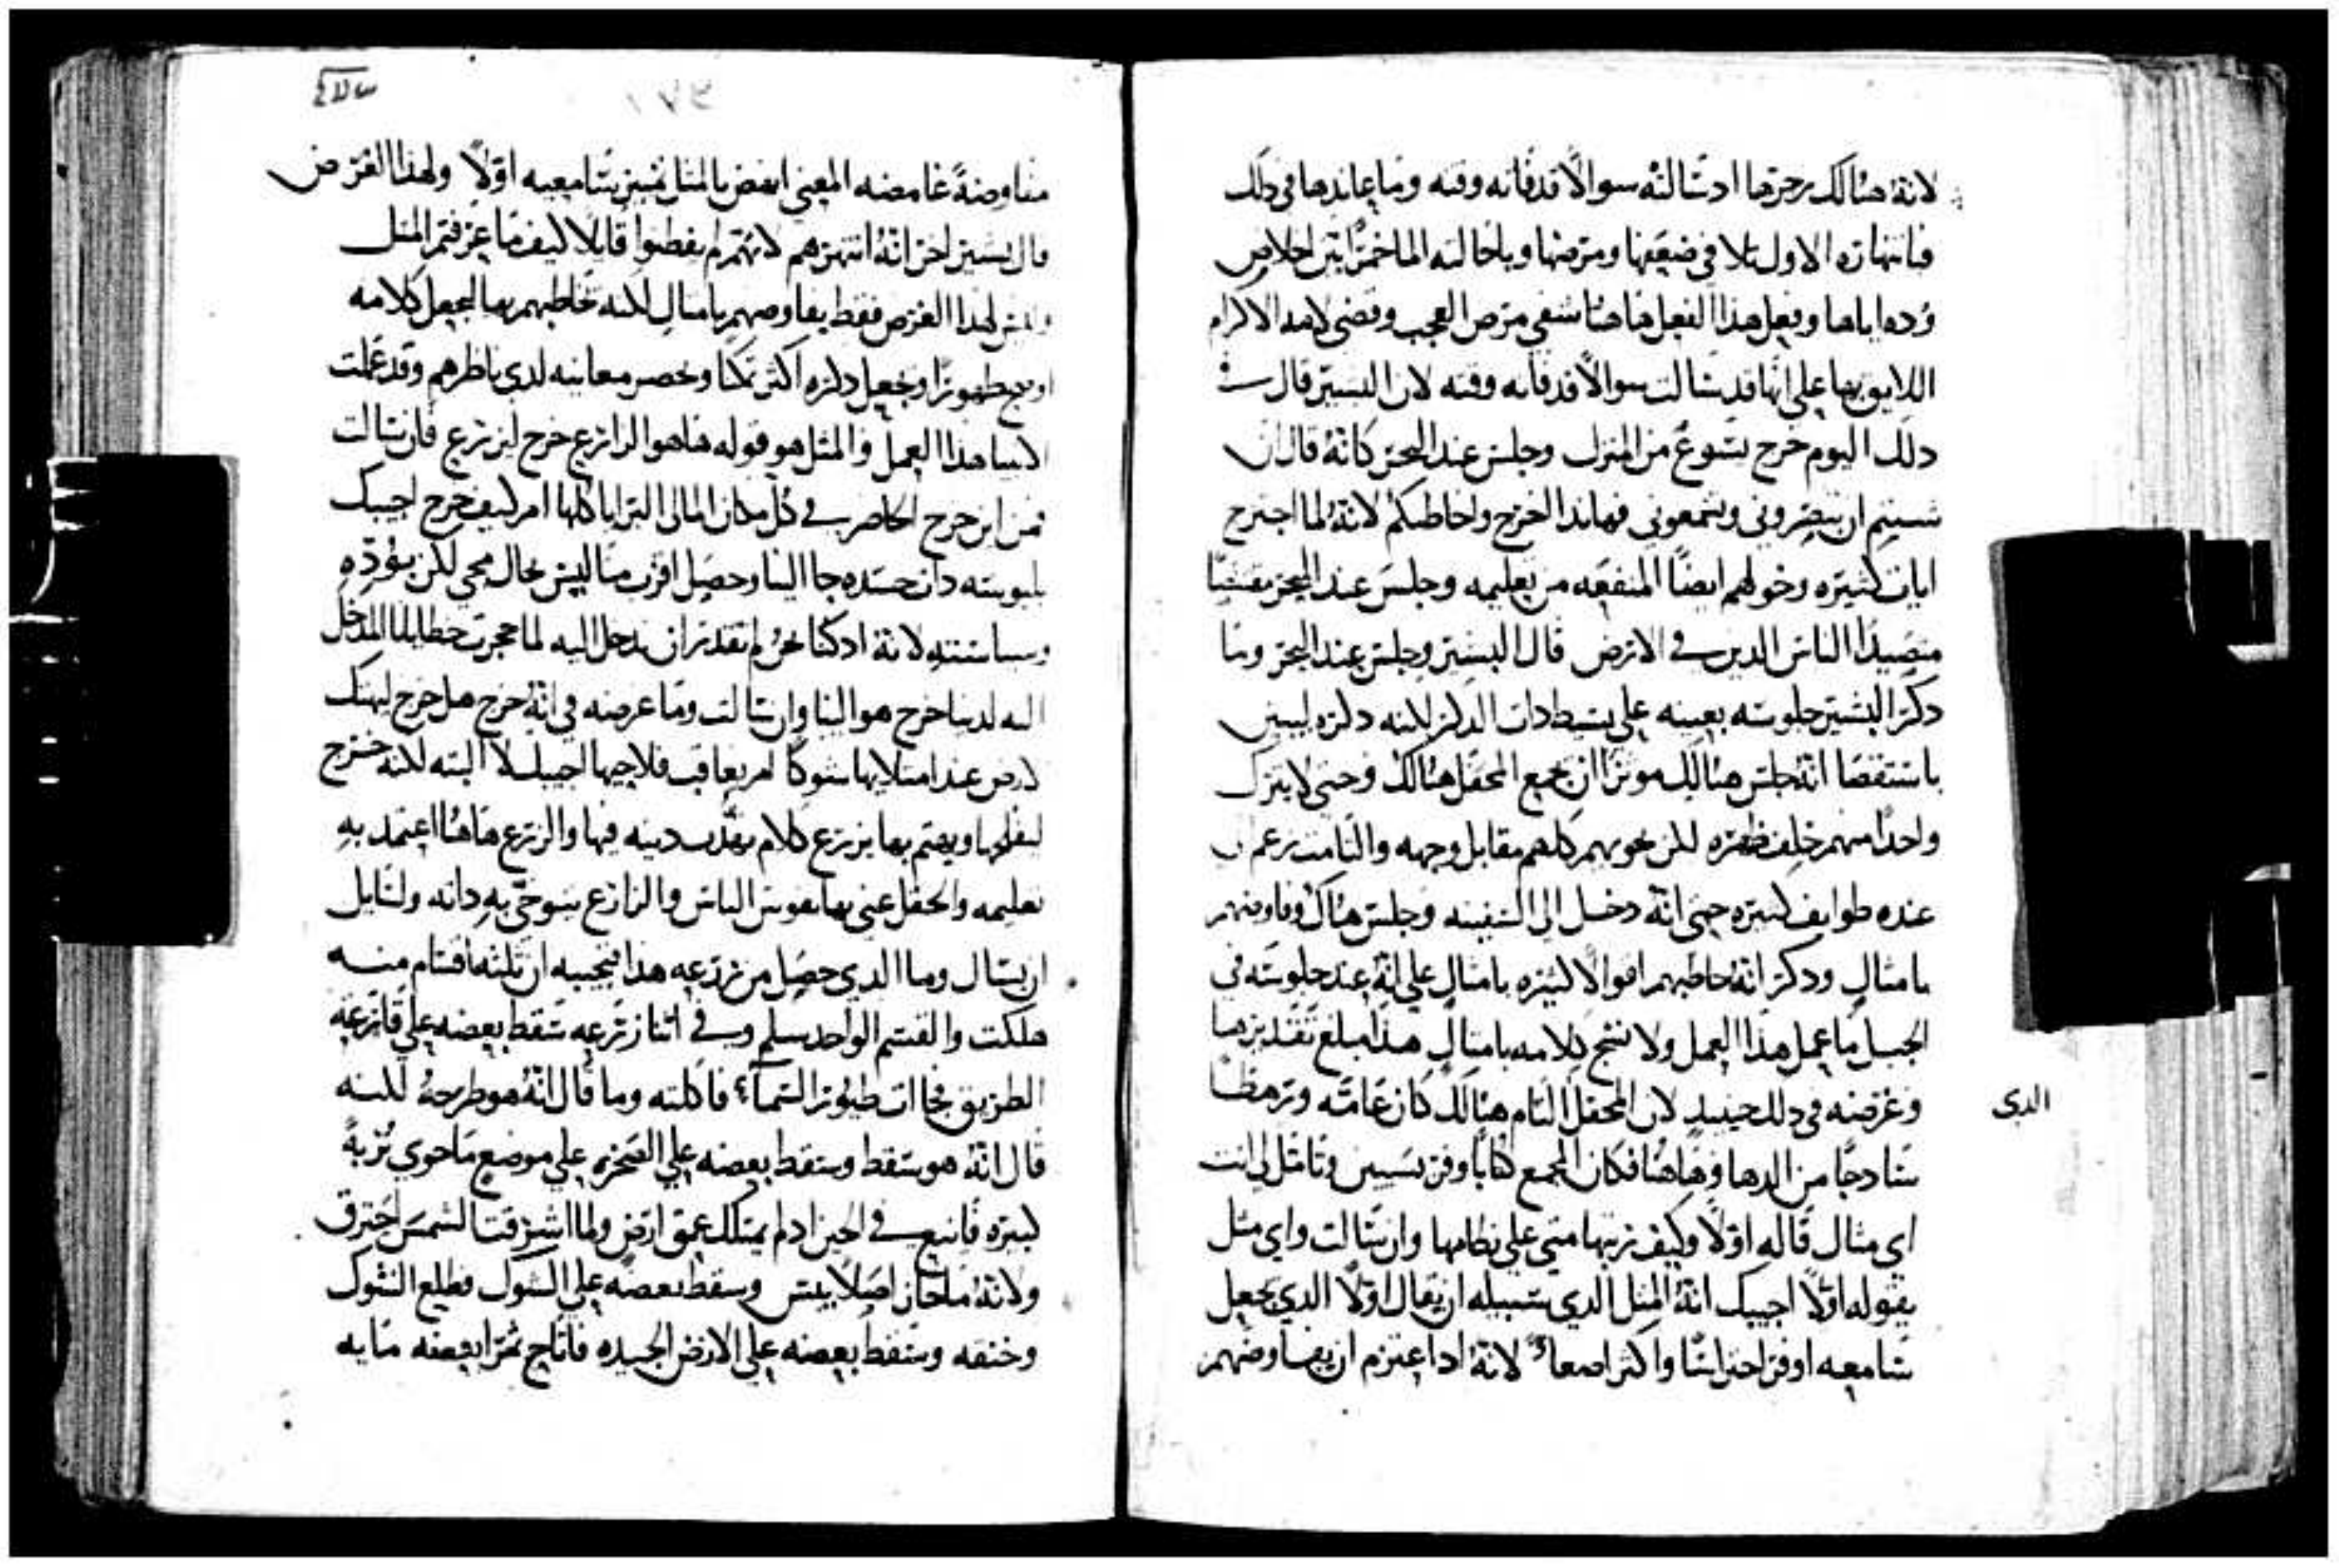 لانهُ هنالك زجرها اد سالته سوالاً قد فاته وقته وما عاندها في دلك
فانتهازه الاول تلا في ضيعفها ومرضها وباحالته الما خمرًا بين اخلاص
وُده اياها وبفعل هدا الفعل هاهنا شفي مرض العجب وقضى لامه الاكرام
اللايق بها على انها قد سالت سوالاً قد فاته وقته لان البشير قال في
دلك اليوم خرج يسوع من المنزل وجلس عند البحر كانهُ قال ان
شيتم ان تبصروني وتسمعوني فهاندا اخرج واخاطبكم لانهُ لما اجترح
ايات كثيره وخولهم ايضًا المنفعه من تعليمه وجلس عند البحر مقتنصًا
متصيدًا الناس الدين في الارض قال البشير وجلس عند البحر وما
دكر البشير جلوسه بعينه على بسيط دات الدكر لكنه دكره ليبين
باستقصا انهُ جلس هنالك موثرًا ان يجمع المحفل هنالك وحتى لا يترك
واحدًا منهم خلف ظهره لكن يحويهم كلهم مقابل وجهه والتامت زعم
عنده طوايف كثيره حتى انهُ دخل الى السفينه وجلس هناك وفاوضهم
بامثال ودكر انهُ خاطبهم اقوالاً كثيره بامثال على انهُ عند جلوسه في
الجبل ما عمل هدا العمل ولا نسج كلامه بامثال هدا مبلغ تقديرها
وغرضه في دلك حينيدٍ لان المحفل التام هنالك كان عامّه ورهطًا
الدى
سادجًا من الدها وهاهنا فكان المجمع كتابًا وفريسيين وتامل لي انت
اي مثال قاله اولاً وكيف رتبها متى على نظامها وان سالت واي مثل
يقوله اولاً اجيبك انهُ المثل الدي سبيله ان يقال اولاً الدي يجعل
سامعيه اوفر احتراسًا واكثر اصغاءً لانهُ ادا اعتزم ان يفاوضهم
مفاوضهً غامضه المعنى انهض بالمثل تمييز سامعيه اولاً ولهدا الغرض
قال بشير اخر انهُ انتهرهم لانهم لم يفطنوا قايلاً كيف ما عرفتم المثل
وليس لهدا الغرض فقط يفاوضهم بامثال لكنه خاطبهم بها ليجعل كلامه
اوضح ظهورًا ويجعل دكره اكثر تمكنًا ويحضر معانيه لدى ناظرهم وقد عملت
الانبيا هدا العمل والمثل هو قوله هاهو الزارع خرج ليزرع فان سالت
من اين خرج الحاضر في كل مكان المالى البرايا كلها ام كيف خرج اجيبك
بلبوسه دات جسده جا الينا وحصل اقرب منا ليس بحال محي لكن بتودده
وسياسته لانهُ اد كنا نحن لم نقدر ان ندخل اليه لما حجزت خطايانا المدخل
اليه لدينا خرج هو الينا وان سالت وما غرضه في انهُ خرج هل خرج ليهلك
الارض عند امتلايها شوكًا ام يعاقب فلاحيها اجيبك لا البته لكنه خرج
ليفلحها ويهتم بها يزرع كلام دينه فيها والزرع هاهنا اعتمد به
تعليمه والحقل عنى بها نفوس الناس والزارع يتوخى به داته ولسايل
ان يسال وما الدي حصل من زرعه هدا فنجيبه ان ثلثه اقسام منه
هلكت والقسم الواحد سلم وفي اثنا زرعه سقط بعضه على قارعة
الطريق فجاات طيور السماء فاكلته وما قال انهُ هو طرحهُ لكنه
قال انهُ هو سقط وسقط بعضه على الصخره على موضع ما حوى تربهً
كثيره فاينع في الحين اد لم يمتلك عمق ارض ولما اشرقت الشمس احترق
ولانهُ ما حاز اصلاً يبس وسقط بعضه على الشوك فطلع الشوك
وخنقه وسقط بعضه على الارض الجيده فاتاج ثمرًا بعضه مايه